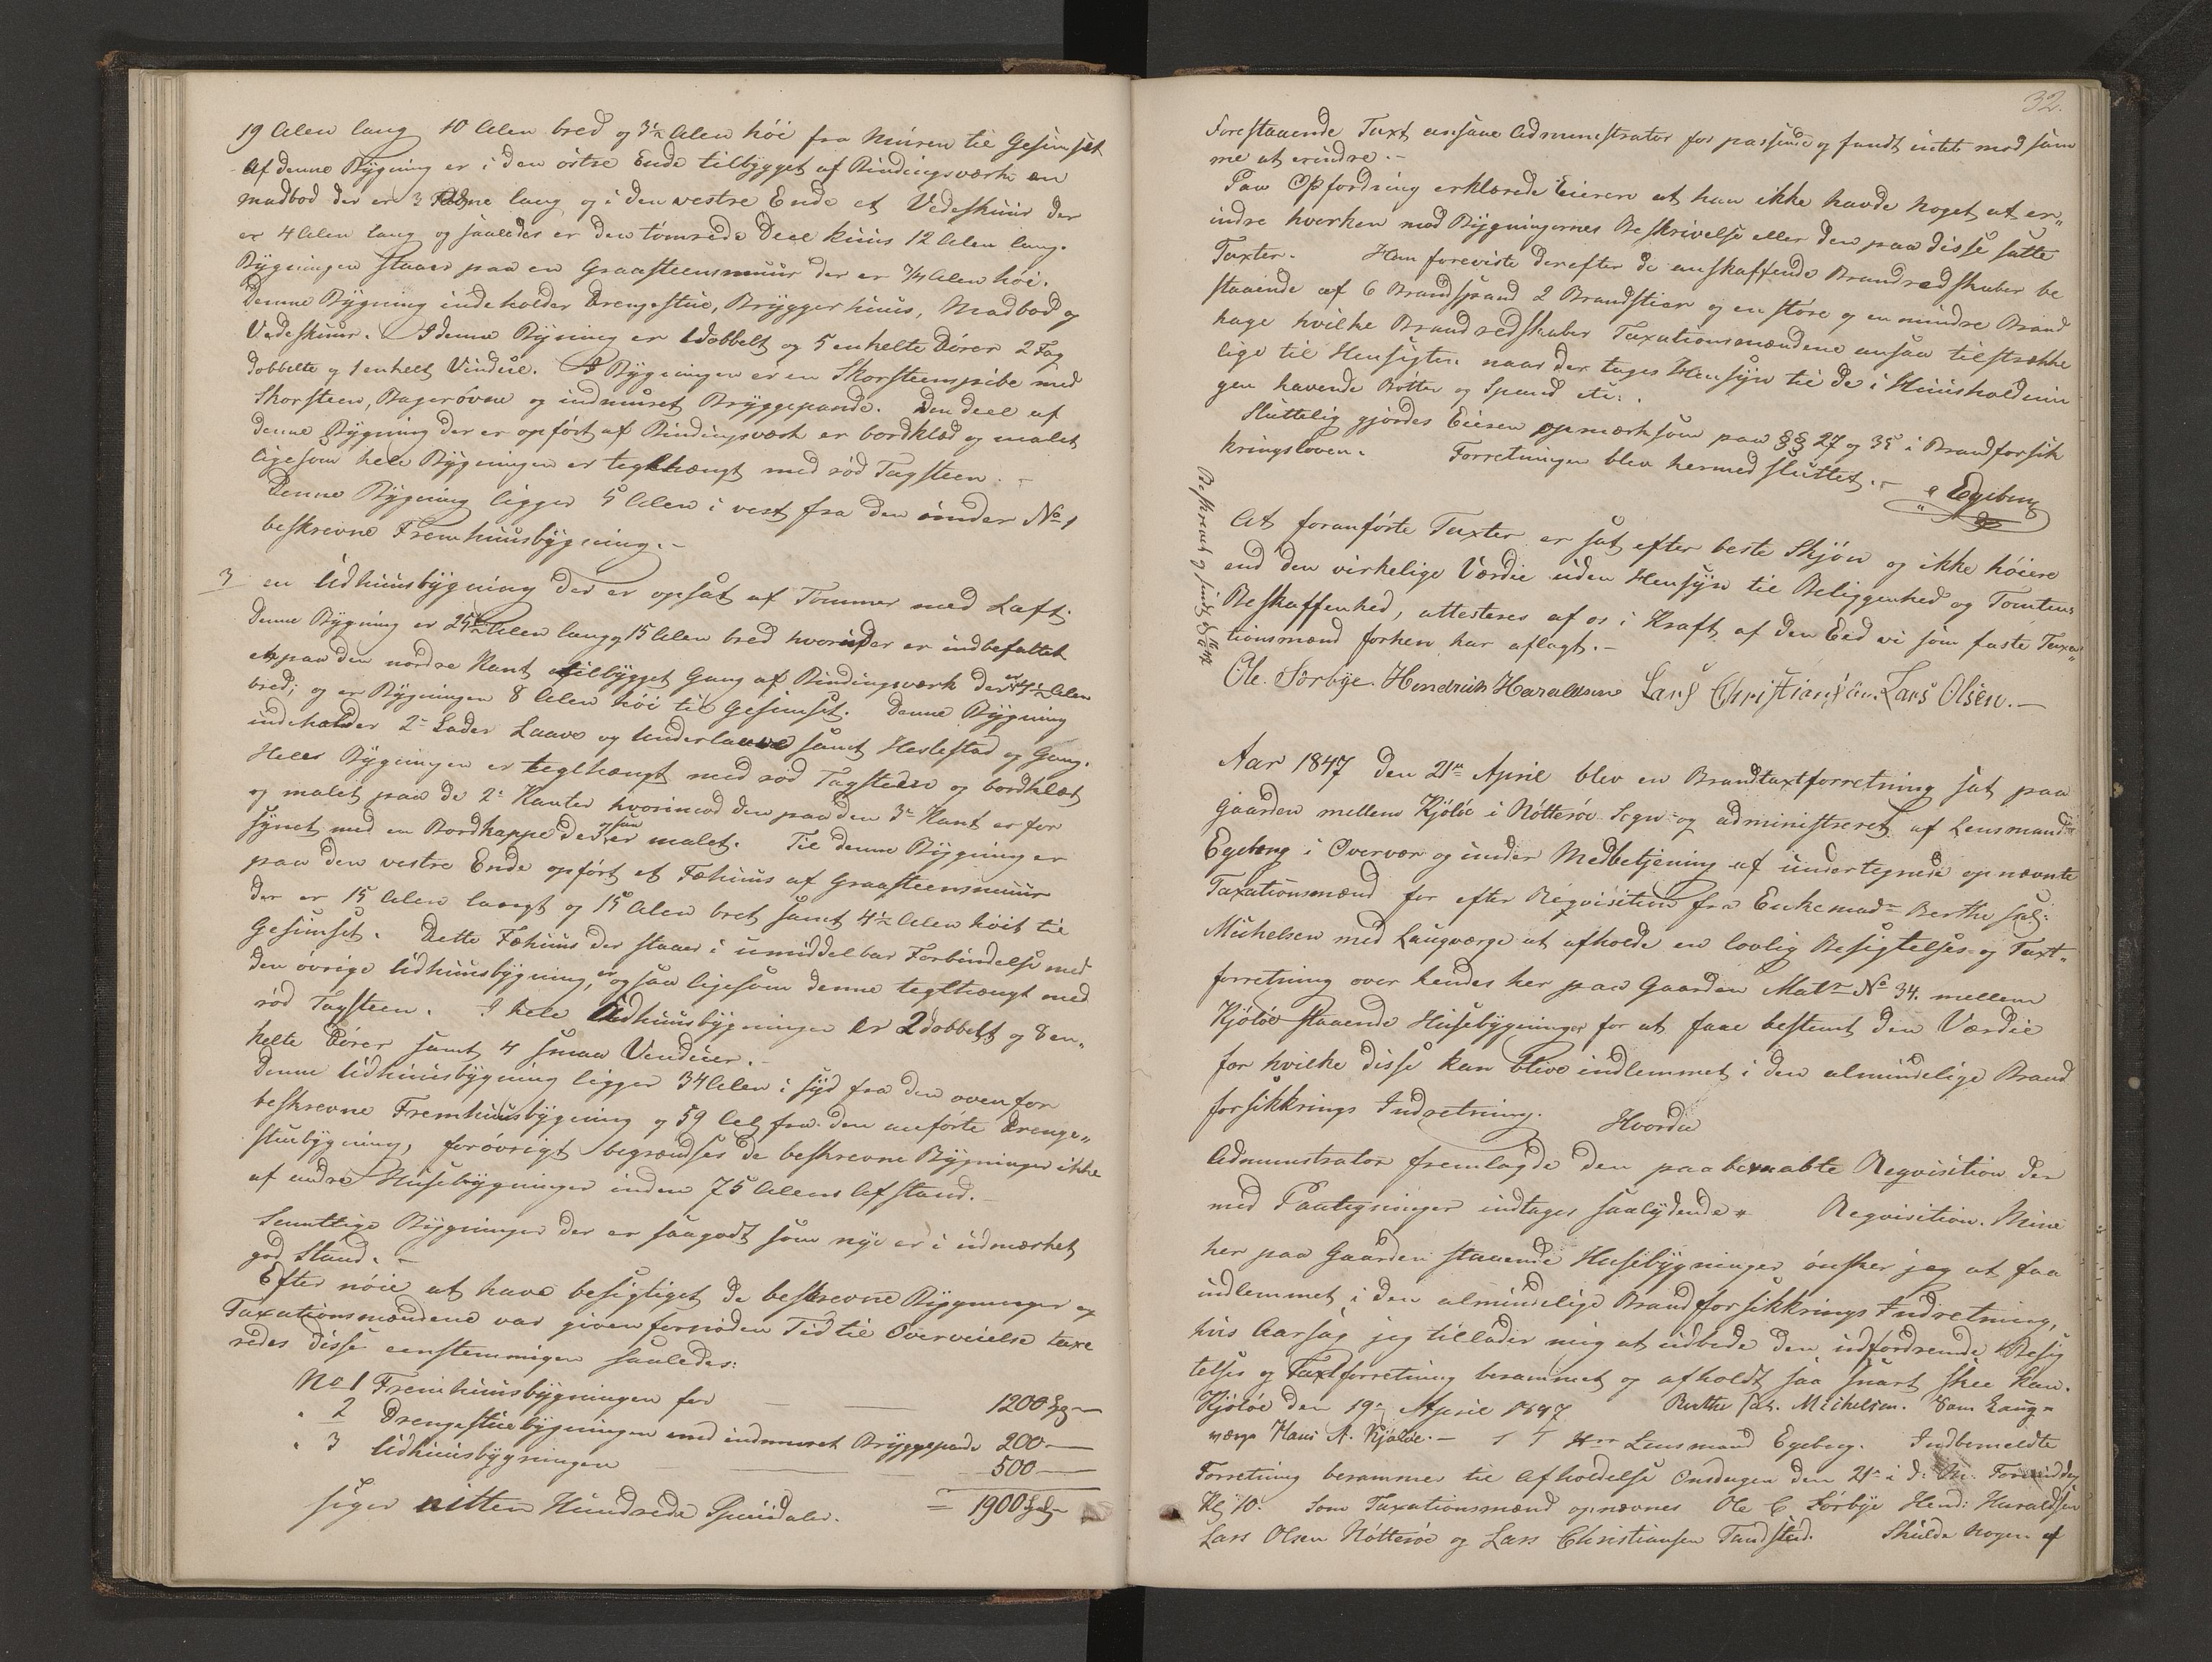 19 Alen lang 10 Alen bred og 3½ Alen höi fra Muren til Gesimset
Af denne Bygning er i den östre Ende tilbygget af Bindingsværk en
madbod der er 3 Alne lang og i den vestre Ende et Vedeskuur der
er 4 Alen lang og saaledes er den tömrede Deel kuns 12 Alen lang.
Bygningen staaer paa en Graasteensmuur der er ¾ Alen höi.
Denne Bygning indeholder Drengestue, Bryggerhuus, Madbod og
Vedeskuur. I denne Bygning er 1 dobbelt og 5 enkelte Dörer 2 Fag
dobbelte og 1 enkelt Vindue. I Bygningen er en Skorsteenspibe med
Skorsteen, Bagerovne og indmuret Bryggepande. Den deel af
denne Bygning der er opfört af Bindingsværk er bordklæd og malet
ligesom hele Bygningen er teglhængt med röd Tagsteen. -
Denne Bygning ligger 5 Alen i vest fra den under No 1
beskrevne Fremhuusbygning. -
3 en Udhuusbygning der er opsat af Tømmer med Laft.
Denne Bygning er 25½ Alen lang og 15 Alen bred hvorunder er indbefattet
et paa den nordre Kant tilbygget Gang af Bindingsværk der er 4½ Alen
bred; og er Bygningen 8 Alen höi til Gesimset. Denne Bygning
indeholder 2de Lader Laave og Underlaave samt Hestestad og Gang.
Heele Bygningen er teglhængt med rød Tagsteen og bordklæt
og malet paa de 2de Kanter hvorimod den paa den 3die Kant er for
synet med en Bordkappe der ogsaa er malet. Til denne Bygning er
paa den vestre Ende opfört et Fæhuus af Graasteensmuur
der er 15 Alen langt og 15 Alen bret samt 4½ Alen höit til
Gesimset. Dette Fæhuus der staaer i umiddelbar Forbindelse med
den övrige Udhuusbygning, er ogsaa ligesom denne teglhængt med
röd Tagsteen. I hele Udhuusbygningen er 2 dobbelt og 8 en„
kelte Dörer samt 4 smaa Vinduer. -
Denne Udhuusbygning ligger 34 Alen i syd fra den ovenfor
beskrevne Fremhuusbygning og 59 Al. fra den anförte Drenge„
stuebygning, forövrigt begrændses de beskrevne Bygninger ikke
af andre Husebygninger inden 75 Alens Afstand. -
Samtlige Bygninger der er saagodt som nye er i udmærket
god Stand. -
Efter nöie at have besigtiget de beskrevne Bygninger og
Taxationsmændene var given fornöden Tid til Overveielse taxe
redes disse eenstemmigen saaledes:
No 1 Fremhuusbygningen for - — 1200 Spd —
" 2 Drengestuebygningen med indmuret Bryggepande 200 —
" 3 Udhuusbygningen — 500 —
siger nitten Hundrede Speciedaler. = 1900 Spd —
32.
Forestaaende Taxt ansaae Administrator for passende og fandt intet mod sam
me at erindre. -
Paa Opfordring erklærede Eieren at han ikke havde noget at er„
indre hverken mod Bygningernes Beskrivelse eller den paa disse satte
Taxter. Han foreviste derefter de anskaffende Brandredskaber be
staaende af 6 Brandspand 2 Brandstier og en störe og en mindre Brand
hage hvilke Brandredskaber Taxationsmændene ansaa tilstrække
lige til Hensigten naar der tages Hensyn til de i Huusholdnin
gen havende Bötter og Spand etc.
Sluttelig gjordes Eieren opmærksom paa §§ 27 og 35 i Brandforsik
kringsloven. Forretningen blev hermed sluttet. - Egeberg
Beskrevet og sendt d.
At foranförte Taxter er sat efter beste Skjön og ikke höiere
end den virkelige Værdie uden Hensyn til Beliggenhed og Tomtens
Beskaffenhed, attesteres af os i Kraft af den Eed vi som faste Taxa„
tionsmænd forhen har aflagt. -
Ole Sørbye. Hendrich Haraldsen Lars Christiansen. Lars Olsen. —
Aar 1847 den 21de April blev en Brandtaxtforretning sat paa
Gaarden mellem Kjölöe i Nötteröe Sogn og administreret af Lensmand
Egeberg i Overvær og under Medbetjening af undertegnede opnævnte
Taxationsmænd for efter Reqvisition fra Enkemad. Berthe sal:
Michelsen med Laugværge at afholde en lovlig Besigtelses- og Taxt„
forretning over hendes her paa Gaarden Matr No 34. mellem
Kjölöe staaende Husebygninger for at faae bestemt den Værdie
for hvilke disse kan blive indlemmet i den almindelige Brand
forsikkrings Indretning. Hvorda
Administrator fremlagde den paaberaabte Reqvisition der
med Paategninger indtages saalydende „ Reqvisition. Mine
her paa Gaarden staaende Husebygninger önsker jeg at faa
indlemmet i den almindelige Brandforsikkrings Indretning,
hvis Aarsag jeg tillader mig at udbede den udfordrende Besig
telses og Taxtforretning berammet og afholdt saa snart skee kan.
Kjölöe den 19de April 1847 Berthe sal. Michelsen. Som Laug„
værge Hans A. Kjölöe. — Hrr Lensmand Egeberg. Indbemeldte
Forretning berammes til Afholdelse Onsdagen den 21de i d: M. Formiddag
Kl 10. Som Taxationsmænd opnævnes Ole C Sörbye Hend: Haraldsen
Lars Olsen Nötteröe og Lars Christiansen Tandsted. Skulde nogen af